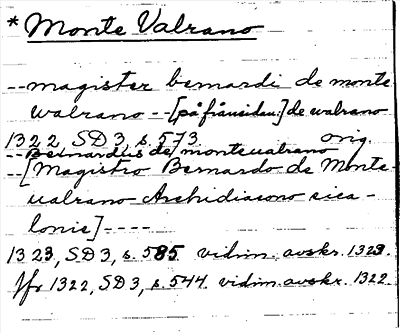 * Monte Valrano
-- magister bernardi de monte
walrano -- [på frånsidan:] de walrano
1322 SD 3, s. 573 orig.
-- Bernardus de montevalrano
-- [Magistro Bernardo de Monte-
ualrano Archidiacono sica-
lonis] ----
1323, SD 3, s. 585 vidim. avskr. 1323.
Jfr 1322, SD 3, s. 544. vidim. avskr. 1322